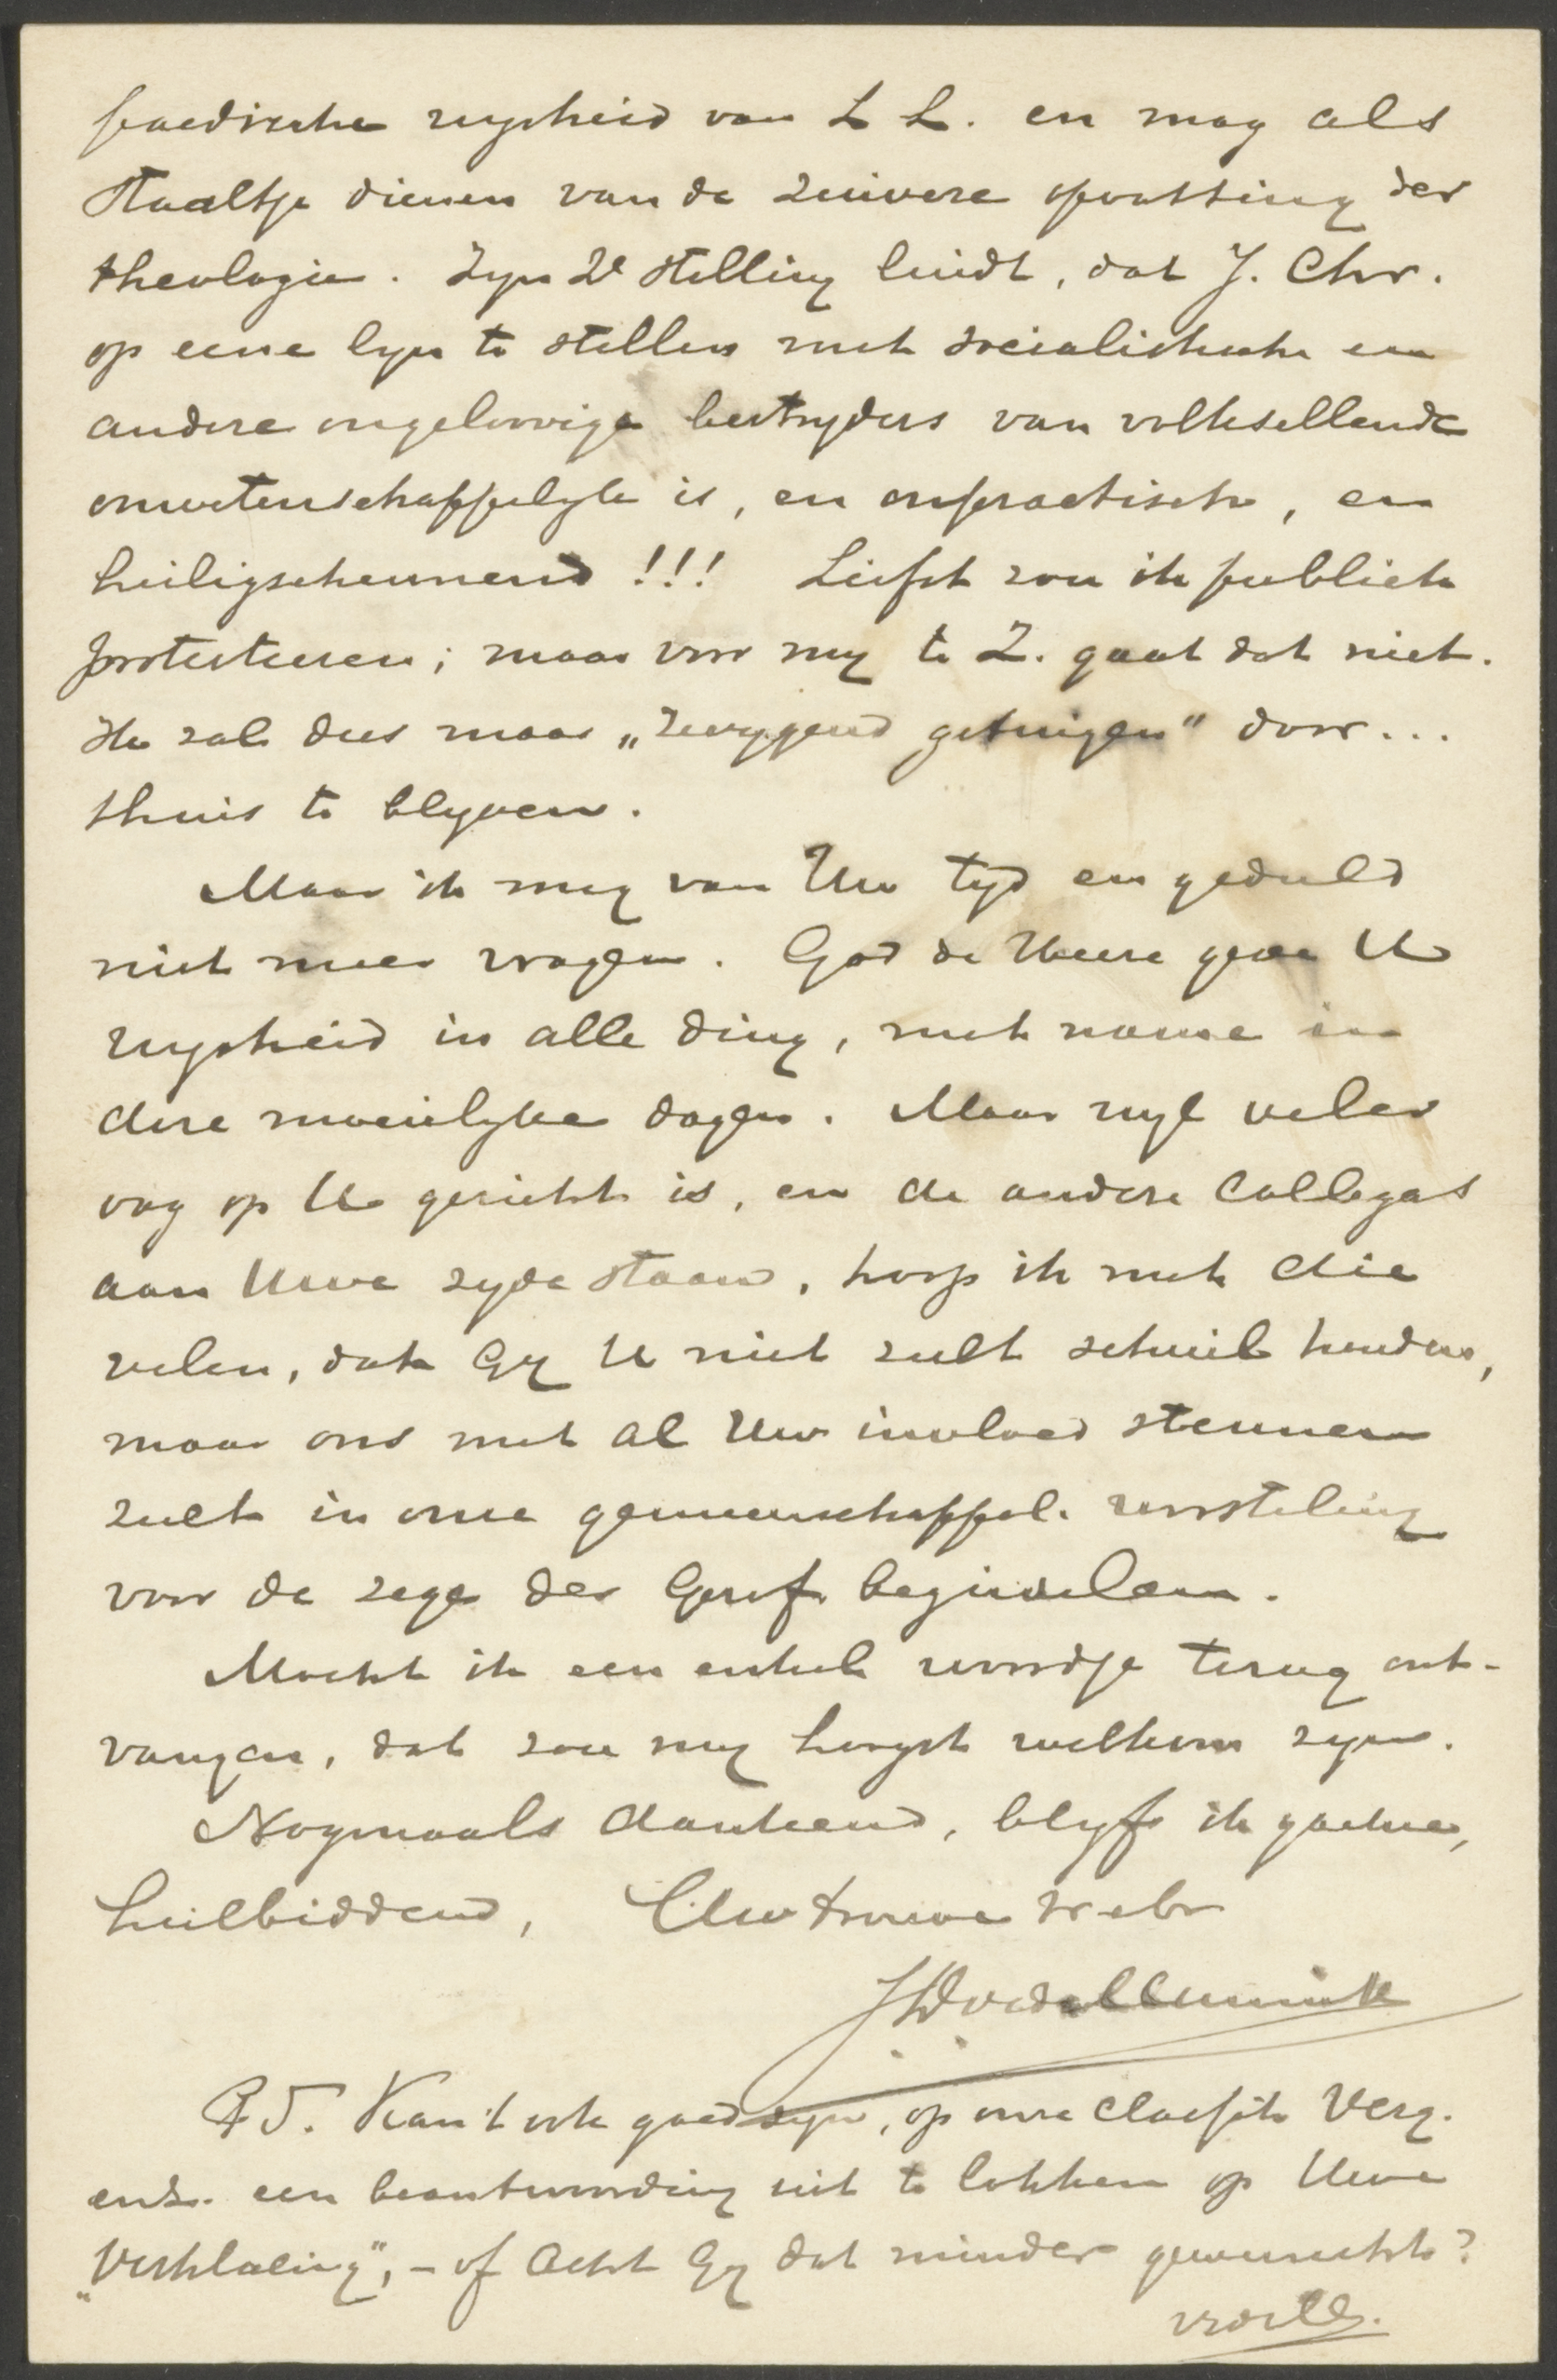 paedische wysheid van L L. en mag als
staaltje dienen van de zuivere opvatting der
theologie. Zyn 2e stelling luidt, dat J. Chr.
op eene lyn te stellen met socialistische en
andere ongeloovige bestryders van volksellende
onwetenschappelyk is, en onpractisch, en
heiligschennend!!! Liefst zou ik publiek
protesteeren; maar voor my te Z. gaat dat niet.
Ik zal dus maar „zwygend getuigen" door...
thuis te blyven.
Maar ik mag van Uw tyd en geduld
niet meer vragen. God de Heere geve U
wysheid in alle ding, met name in
deze moeielyke dagen. Maar wyl veler
oog op U gericht is, en de andere collegas
aan Uwe zyde staan, hoop ik met die
velen, dat Gy U niet zult schuil houden,
maar ons met al Uw invloed steunen
zult in onze gemeenschappel. worsteling
voor de zege der Geref. beginselen.
Mocht ik een enkel woordje terug ont-
vangen, dat zou my hoogst welkom zyn.
Nogmaals dankend, blyf ik gaarne,
heilbiddend, Uw trouwe vr en br
PS. Kan 't ook goed zyn, op onze classis Verg.
enz. een beantwoording uit te lokken op Uwe
„Verklaring", - of acht Gy dat minder gewenscht?